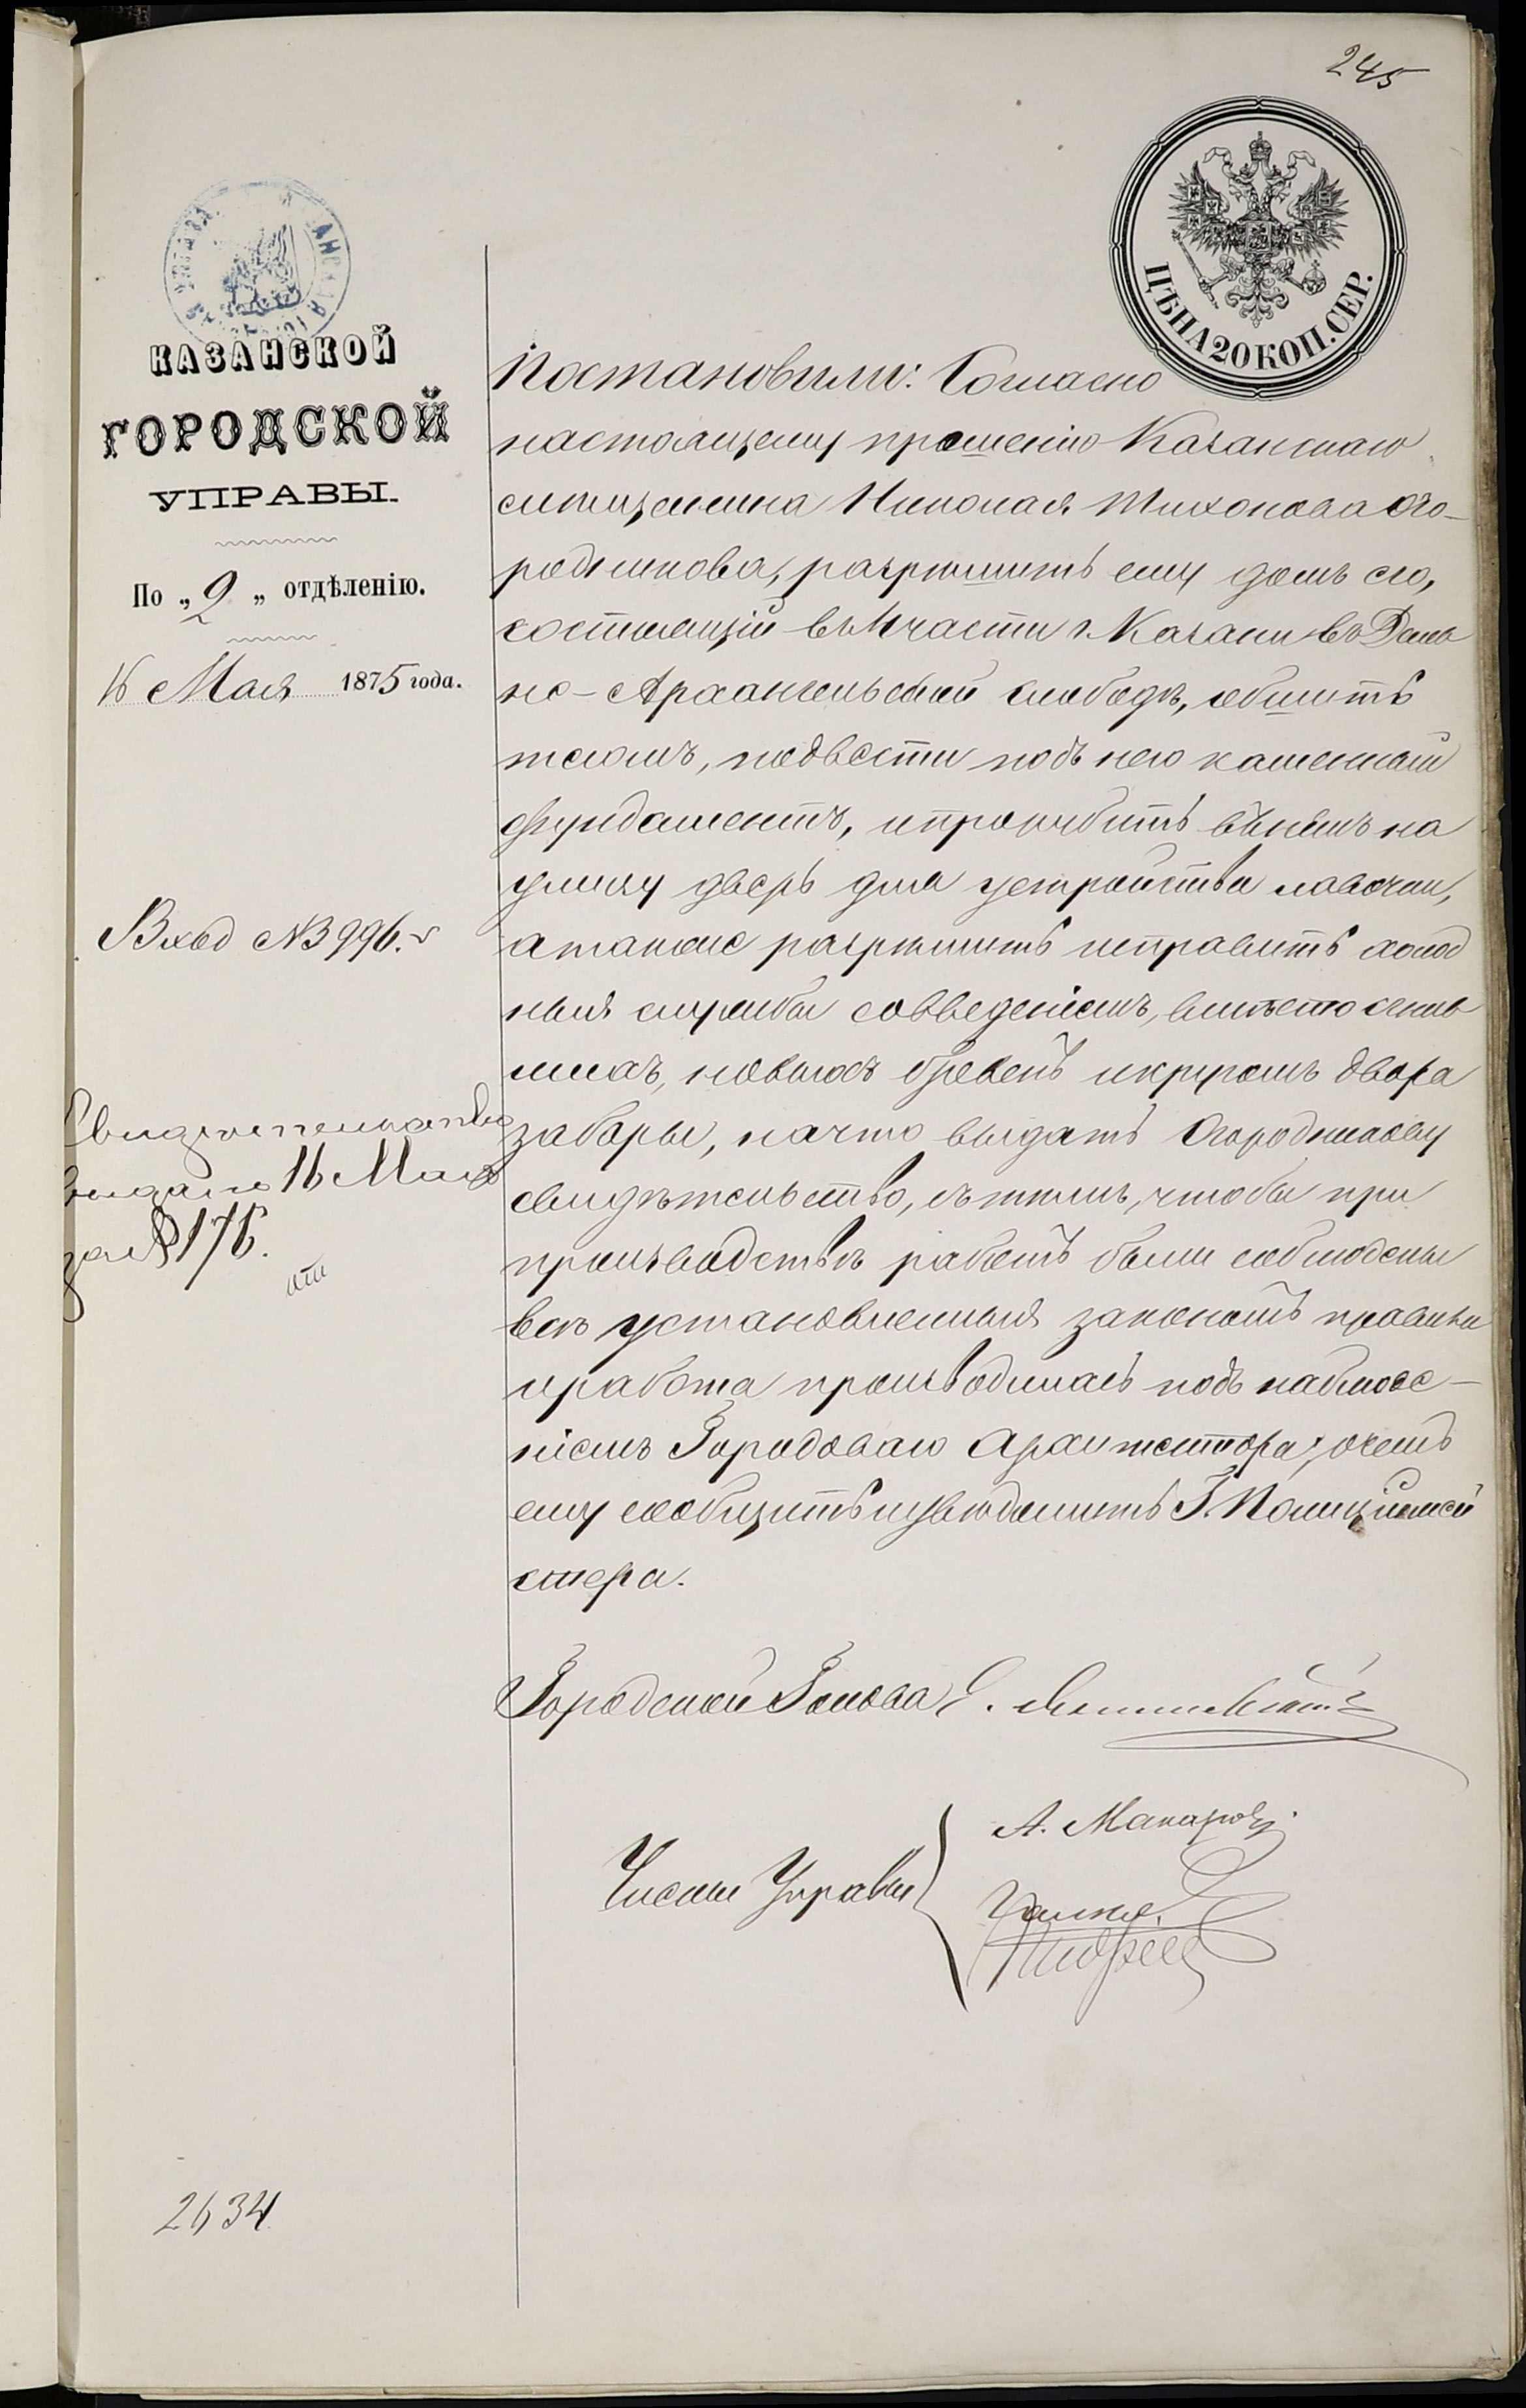 245
ЦѢНА 20 КОП. СЕР.
КАЗАНСКОЙ
ГОРОДСКОЙ
УПРАВЫ.
По „2„ отдѣленію.
16 Мая 1875 года.
Вход № 3996.
Свидетельство
выдано 16 Мая
за № 176.
Постановили: Согласно
настоящему прошенію Казанскаго
мѣщанина Николая Тихонова Ого-
родникова, разрѣшить ему домъ его,
состоящій въ части г. Казани въ Даль
не-Архангельской слободѣ, обшить
тесомъ, подвести подъ него каменный
фундаментъ, и прорубить въ немъ на
улицу дверь для устройства лавочки,
а также разрѣшить исправить холод
ныя службы со введеніемъ, вмѣсто сгнив
шихъ, новыхъ бревенъ и кругомъ двора
заборы, на что выдать Огородникову
свидѣтельство, съ тѣмъ, чтобы при
производствѣ работъ были соблюдены
всѣ установленныя закономъ правила
и работа производилась подъ наблюде-
ніемъ Городоваго Архитектора, о чемъ
ему сообщить и увѣдомить Г. Полиціймей
стера.
Городской Голова
Члены Управы
А. Макаровъ
2634